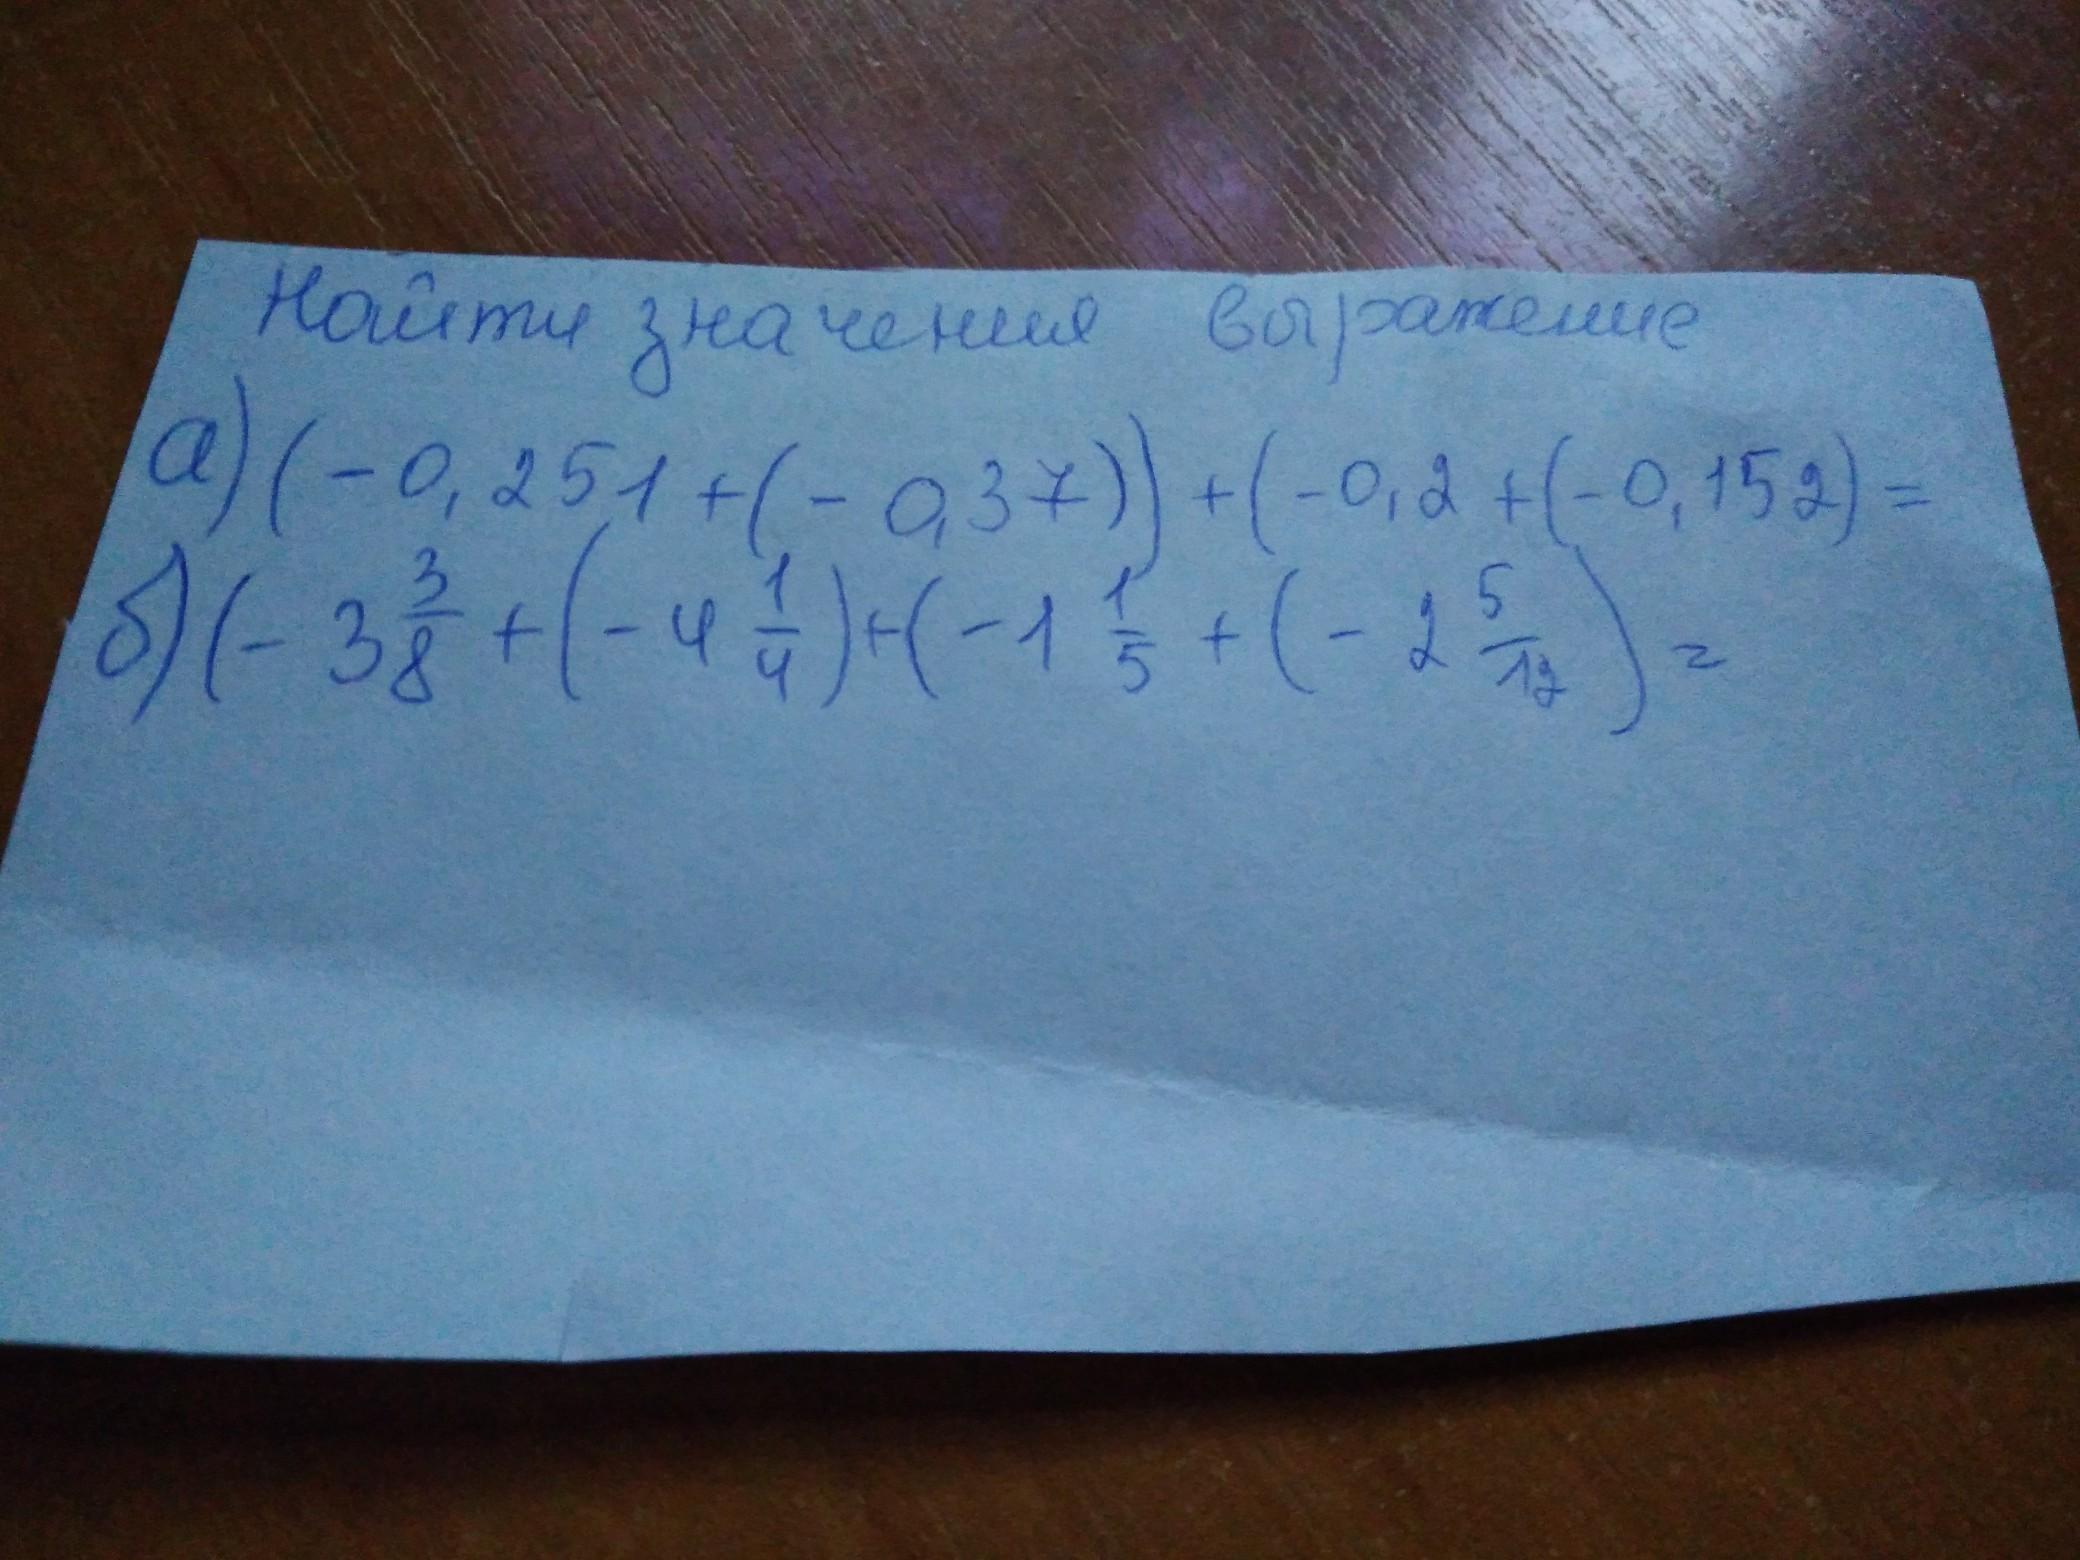 Найти значения выражение
а) (-0,251+(-0,37))+(-0,2+(-0,152)=
б) (-3 3/8+(-4 1/4)+(-1 1/5+(-2 5/12)=